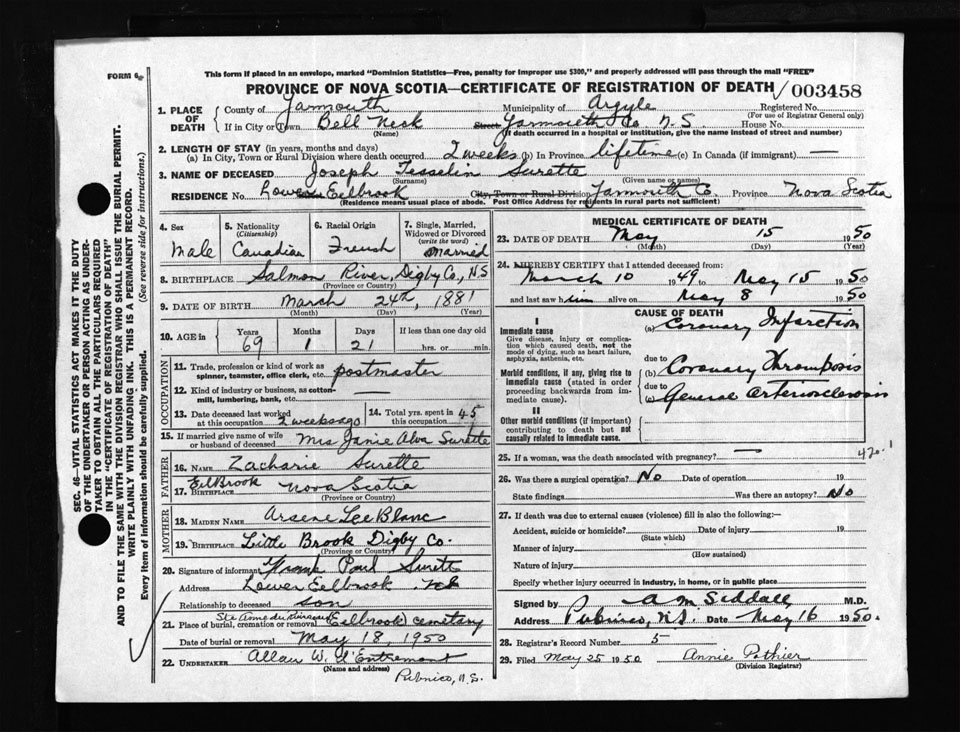 FORM 6
This form if placed in an envelope, marked "Dominion Statistics—Free, penalty for improper use $300," and properly addressed will pass through the mail "FREE"
PROVINCE OF NOVA SCOTIA—CERTIFICATE OF REGISTRATION OF DEATH 003458
1. PLACE OF DEATH County of Yarmouth Municipality of Argyle Registered No.
(For use of Registrar General only)
If in City or Town Bell Neck Street Yarmouth Co. N.S. House No.
(Name) (If death occurred in a hospital or institution, give the name instead of street and number)
2. LENGTH OF STAY (in years, months and days)
(a) In City, Town or Rural Division where death occurred 2 weeks (b) In Province lifetime (c) In Canada (if immigrant) —
3. NAME OF DECEASED Joseph Tesselin Surette
(Surname) (Given name or names)
RESIDENCE No. Lower Eelbrook City, Town or Rural Division Yarmouth Co. Province Nova Scotia
(Residence means usual place of abode. Post Office Address for residents in rural parts not sufficient)
4. Sex Male
5. Nationality (Citizenship) Canadian
6. Racial Origin French
7. Single, Married, Widowed or Divorced (write the word) Married
8. BIRTHPLACE Salmon River, Digby Co., N.S
(Province or Country)
9. DATE OF BIRTH March 24th, 1881
(Month) (Day) (Year)
10. AGE in Years 69 Months 1 Days 21 If less than one day old hrs. or min.
OCCUPATION
11. Trade, profession or kind of work as spinner, teamster, office clerk, etc. postmaster
12. Kind of industry or business, as cotton mill, lumbering, bank, etc. —
13. Date deceased last worked at this occupation 2 weeks ago
14. Total yrs. spent in this occupation 45
15. If married give name of wife or husband of deceased Mrs Janie Alva Surette
FATHER
16. NAME Zacharie Surette
17. BIRTHPLACE EelBrook Nova Scotia
(Province or Country)
MOTHER
18. MAIDEN NAME Arsene LeeBlanc
19. BIRTHPLACE Little Brook Digby Co.
(Province or Country)
20. Signature of informant Frank Paul Surett
Address Lower Eelbrook N.S
Relationship to deceased son
21. Place of burial, cremation or removal Ste Anne du Ruisseau Eelbrook cemetary
Date of burial or removal May 18, 1950
22. UNDERTAKER Allan W. d'Entremont
(Name and address)
Pubnico, N.S.
MEDICAL CERTIFICATE OF DEATH
23. DATE OF DEATH May 15 1950
(Month) (Day) (Year)
24. I HEREBY CERTIFY that I attended deceased from:
March 10 1949 to May 15 1950
and last saw him alive on May 8 1950
CAUSE OF DEATH
I
Immediate cause
Give disease, injury or complication which caused death, not the mode of dying, such as heart failure, asphyxia, asthenia, etc.
(a) Coronary Infarction
due to
Morbid conditions, if any, giving rise to immediate cause (stated in order proceeding backwards from immediate).
(b) Coronary Thromposis
due to
(c) General Arteriosclerosis
II
Other morbid conditions (if important) contributing to death but not causally related to immediate cause.
25. If a woman, was the death associated with pregnancy? — 420.1
26. Was there a surgical operation? No Date of operation 19
State findings Was there an autopsy? No
27. If death was due to external causes (violence) fill in also the following:—
Accident, suicide or homicide? Date of injury 19
(State which)
Manner of injury
(How sustained)
Nature of injury
Specify whether injury occurred in industry, in home, or in public place
Signed by A M Siddall M.D.
Address Pubnico, N.S. Date May 16 1950.
28. Registrar's Record Number 5
29. Filed May 25 1950 Annie Pothier
(Division Registrar)
SEC. 46—VITAL STATISTICS ACT MAKES IT THE DUTY
OF THE UNDERTAKER OR PERSON ACTING AS UNDER-
TAKER TO OBTAIN ALL THE PARTICULARS REQUIRED
IN THE "CERTIFICATE OF REGISTRATION OF DEATH"
AND TO FILE THE SAME WITH THE DIVISION REGISTRAR WHO SHALL ISSUE THE BURIAL PERMIT.
WRITE PLAINLY WITH UNFADING INK. THIS IS A PERMANENT RECORD.
Every item of information should be carefully supplied. (See reverse side for instructions.)